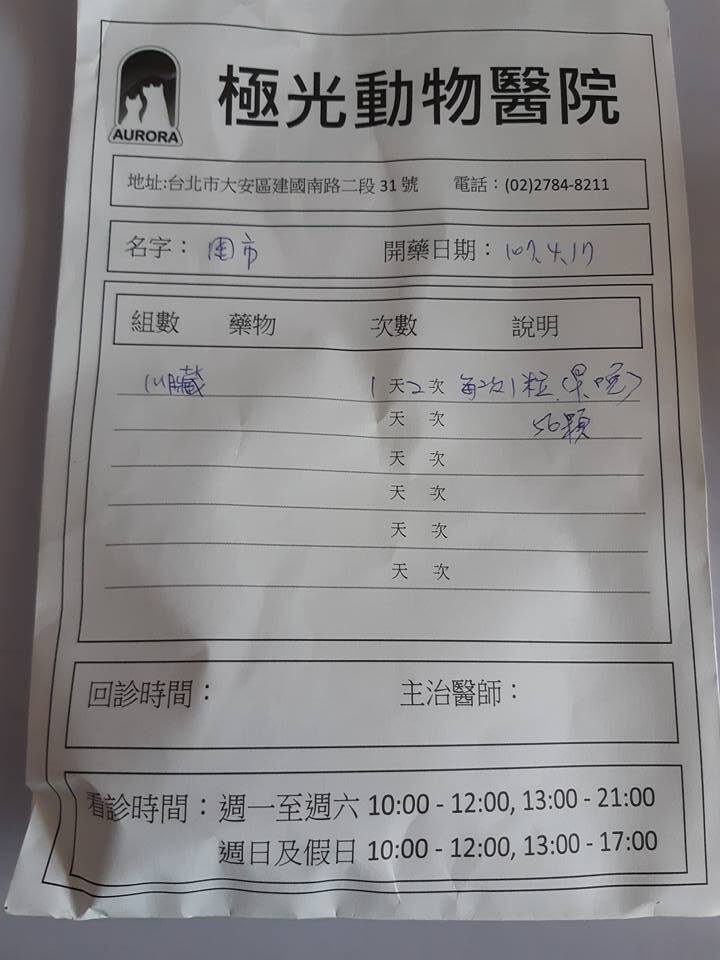 極光動物醫院
AURORA
地址:台北市大安區建國南路二段 31 號 電話：(02)2784-8211
名字： 開藥日期：107.4.17
組數 藥物 次數 說明
1 天 2 次 每次1粒(早晚)
天 次 56顆
天 次
天 次
天 次
天 次
回診時間： 主治醫師：
看診時間：週一至週六 10:00 - 12:00, 13:00 - 21:00
週日及假日 10:00 - 12:00, 13:00 - 17:00